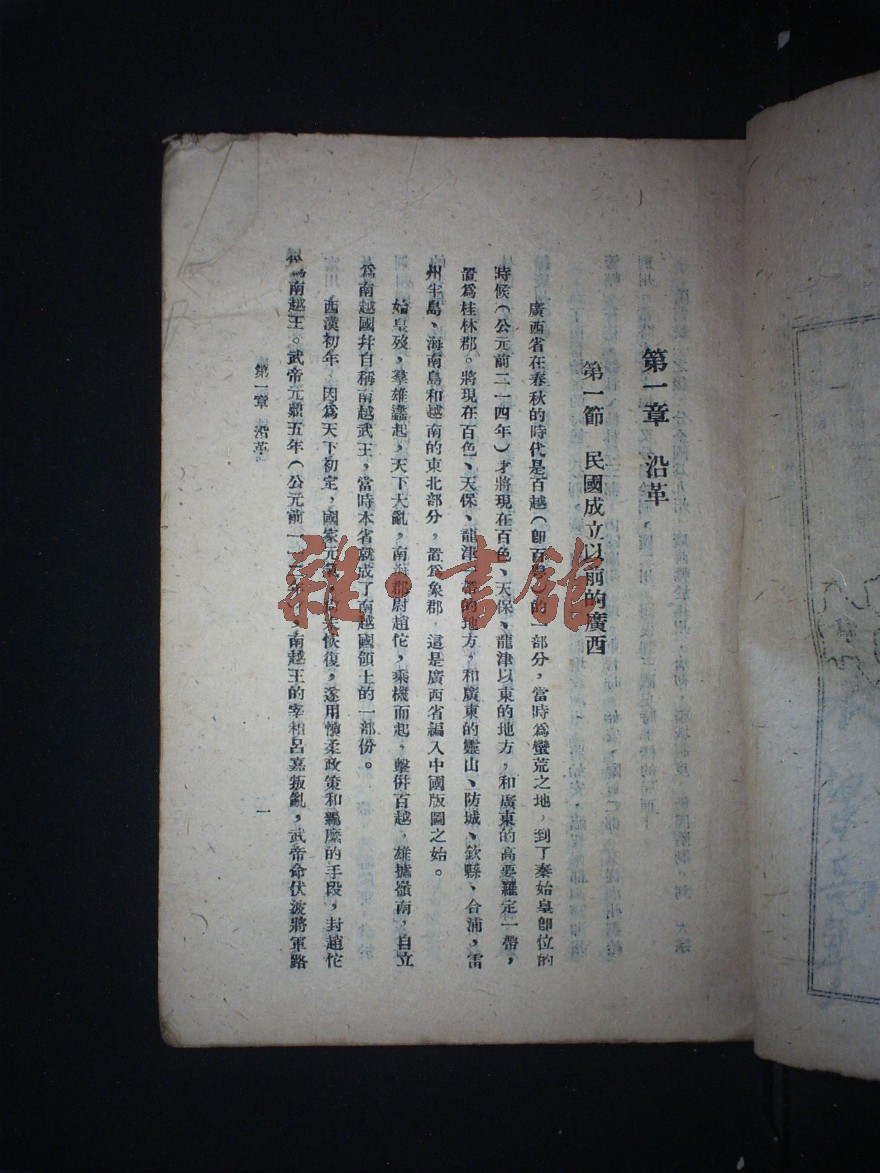 第一章　沿革
第一節　民國成立以前的廣西
廣西省在春秋的時代是百越（卽百粵）的一部分，當時爲蠻荒之地，到了秦始皇卽位的
時候（公元前二一四年）才將現在百色、天保、龍津以東的地方，和廣東的高要羅定一帶，
置爲桂林郡。將現在百色、天保、龍津一帶的地方，和廣東的靈山、防城、欽縣、合浦，雷
州半島、海南島和越南的東北部分，置爲象郡，這是廣西省編入中國版圖之始。
始皇歿，羣雄蠭起，天下大亂，南海郡尉趙佗，乘機而起，擊併百越，雄據嶺南，自立
爲南越國幷自稱南越武王，當時本省就成了南越國領土的一部份。
西漢初年，因爲天下初定，國家元氣，恢復，遂用懷柔政策和羈縻的手段，封趙佗
爲南越王。武帝元鼎五年（公元前一一年），南越王的宰相呂嘉叛亂，武帝命伏波將軍路
第一章　沿革
一
雜·書館